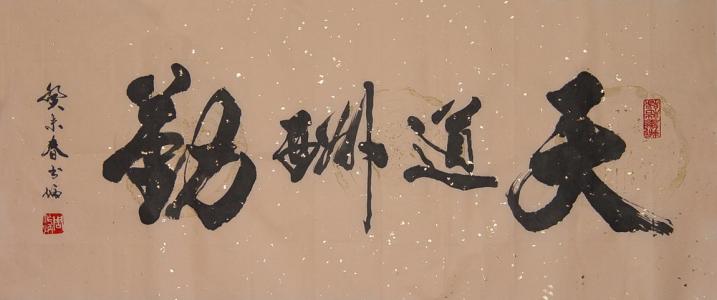 天道酬勤
癸未春書炳